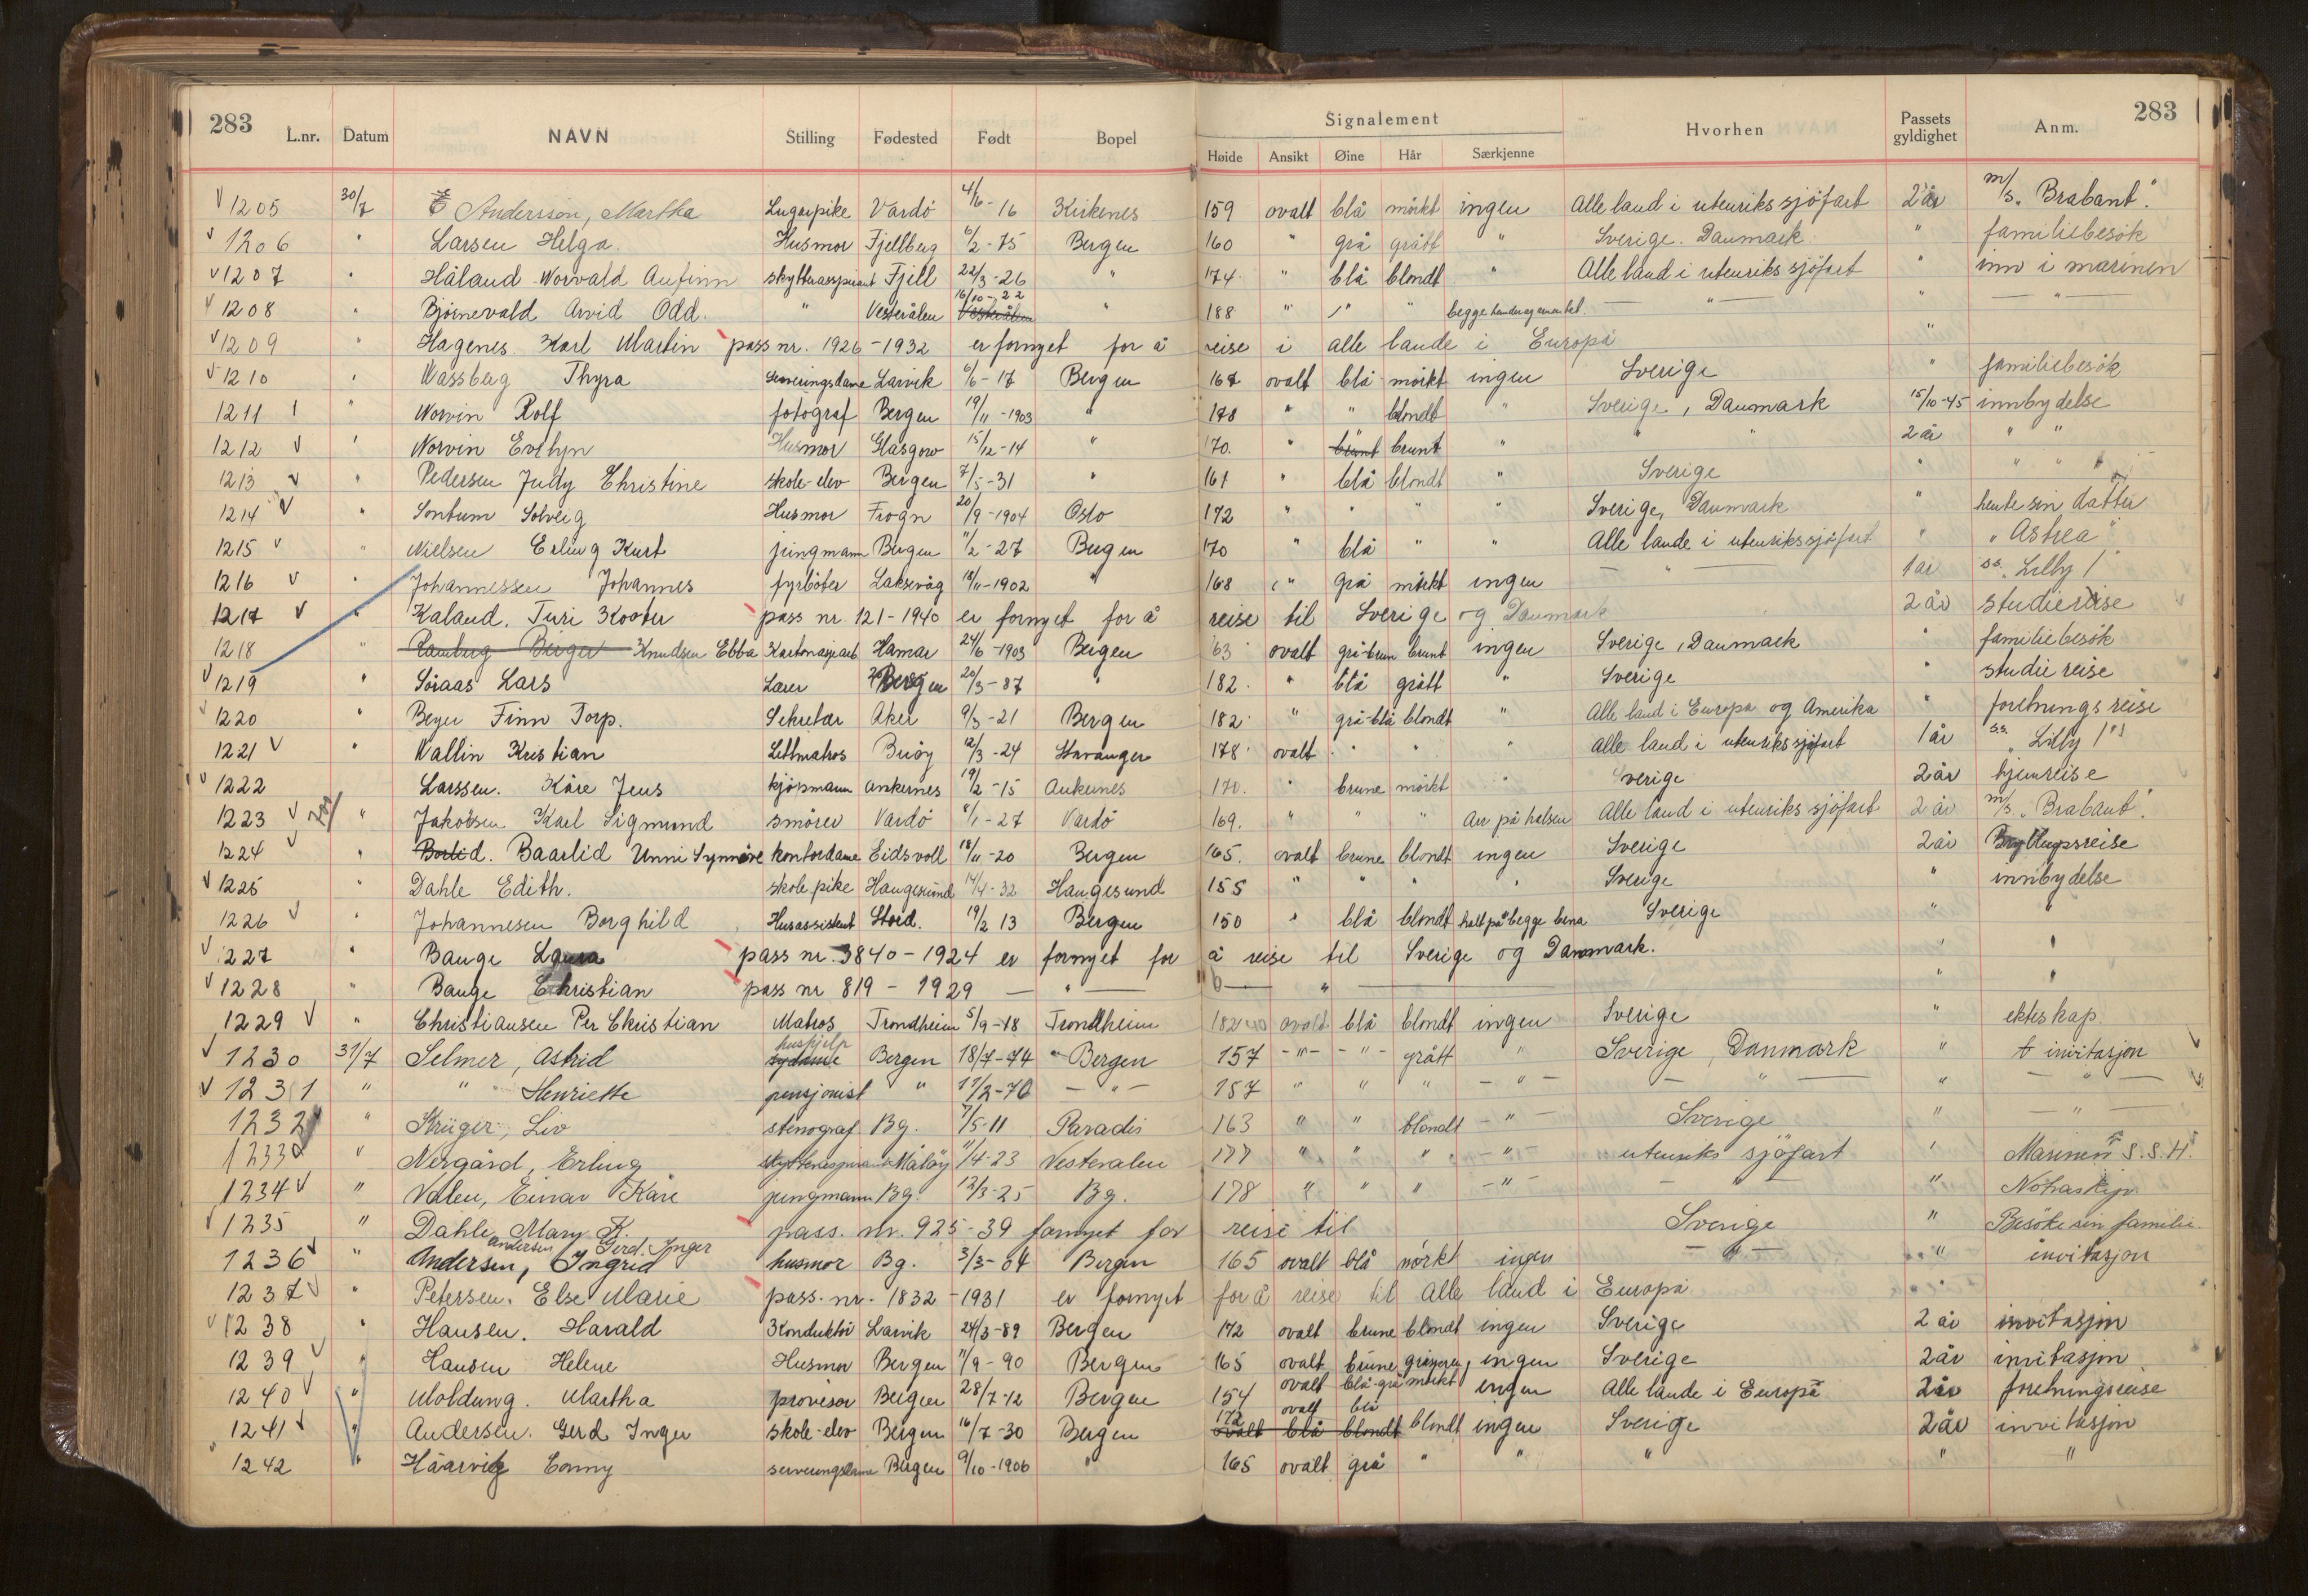 283 283
L.nr. Datum NAVN Stilling Fødested Født Bopel Signalement Hvorhen Passets gyldighet Anm.
Høide Ansikt Øine Hår Særkjenne
1205 30/7 Andersson, Martha Lugarpike Vardö 4/6-16 Kirkenes 159 ovalt blå mörkt ingen Alle land i utenriks sjöfart 2 år m/s. "Brabant".
1206 " Larsen Helga. Husmor Fjellberg 6/2-75 Bergen 160 " grå grått " Sverige. Danmark " familiebesök
1207 " Håland Norvald Anfinn skytteraspirant Fjell 22/3-26 " 174 " blå blondt " Alle land i utenriks sjöfart " inn i marinen
1208 " Bjørnevald Arvid Odd. " Vesterålen 16/10-22 " 188 " " " begge — " — " — " —
1209 " Hagenes. Karl Martin pass nr. 1926-1932 er fornyet for å reise i alle lande i Europa "
1210 " Wassberg Thyra Serveringsdame Larvik 6/6-17 Bergen 167 ovalt blå mörkt ingen Sverige " familiebesök
1211 " Norvin Rolf fotograf Bergen 19/11-1903 " 178 " " blondt " Sverige, Danmark 15/10-45 innbydelse
1212 " Norvin Evelyn Husmor Glasgow 15/12-14 " 170. " brunt brunt " " " 2 år " "
1213 " Pedersen Judy Christine skole-elev Bergen 7/5-31 " 161 " blå blondt " Sverige " " " "
1214 " Sontum Solveig Husmor Frogn 20/9-1904 Oslo 172 " " " " Sverige, Danmark " hente sin datter
1215 " Nielsen Erling Kurt jungmann Bergen 11/2-27 Bergen 170 " blå " " Alle lande i utenrikssjöfart " "Astrea"
1216 " Johannessen Johannes fyrböter Laksevåg 18/11-1902 " 168 " grå mörkt ingen — " — 1 år ss. "Lilly 1"
1217 " Kaland. Turi Kooter pass nr 121-1940 er fornyet for å reise til Sverige og Danmark 2 år studiereise
1218 " Ramberg Birger Knudsen Ebba Kartonasjearb Hamar 24/6-1903 Bergen 163 ovalt grå-brun brunt ingen Sverige, Danmark " familiebesök
1219 " Söraas Lars Lærer Bergen 20/3-87 " 182 " blå grått " Sverige " studie reise
1220 " Beyer Finn Torp. Sekretær Aker 9/3-21 Bergen 182 " grå-blå blondt " Alle land i Europa og Amerika " foretnings reise
1221 " Wallin Kristian Lettmatros Buöy 12/3-24 Stavanger 178 ovalt " " " Alle land i utenriks sjøfart 1 år ss. "Lilly 1"
1222 Larssen. Kåre Jens kjöpmann Ankernes 19/2-15 Ankernes 170. " brune mörkt " Sverige 2 år hjemreise
1223 " Jakobsen Karl Sigmund smörer Vardö 8/1-27 Vardö 169. " " " Arr på halsen Alle land i utenriks sjöfart 2 år m/s. "Brabant".
1224 " Borlid. Baarlid Unni Synnöve kontordame Eidsvoll 18/11-20 Bergen 165. ovalt brune blondt ingen Sverige 2 år Bryllupsreise
1225 " Dahle Edith. skole pike Haugesund 14/4-32 Haugesund 155 " " " " Sverige " innbydelse
1226 " Johannesen Borghild Husassistent Stord. 19/2 13 Bergen 150 " blå blondt halt på begge bena Sverige " "
1227 " Bauge Laura pass nr. 3840-1924 er fornyet for å reise til Sverige og Danmark. " "
1228 " Bauge Christian pass nr 819-1929 — " — " — " "
1229 " Christiansen Per Christian Matros Trondheim 5/9-18 Trondheim 182 ovalt blå blondt ingen Sverige " ekteskap.
1230 31/7 Selmer, Astrid sydame hushjelp Bergen 18/7-74 Bergen 157 -"- -"- grått " Sverige, Danmark " invitasjon
1231 " " Henriette pensjonist " 17/2-70 — " — 157 " " " — " — — " — " — " —
1232 " Krüger, Liv stenograf Bg. 7/5-11 Paradis 163 " " blondt — " — Sverige " — " —
1233 " Nergård, Erling skytteraspirant Måløy 11/4-23 Vesterålen 177 " " " — " — utenriks sjöfart " Marinen S.S.H.
1234 " Valen, Einar Kåre jungmann Bg. 12/3-25 Bg. 178 " " " — " — — " — " Notraship.
1235 " Dahle, Mary K. pass. nr. 925-39 fornyet for reise til Sverige " Besöke sin familie
1236 " Andersen, Ingrid Andersen Gerd. Inger husmor Bg. 3/3-04 Bergen 165 ovalt blå mörkt ingen — " — " invitasjon
1237 " Petersen. Else Marie pass. nr. 1832-1931 er fornyet for å reise til Alle land i Europa "
1238 " Hansen. Harald Konduktör Larvik 24/3-89 Bergen 172 ovalt brune blondt ingen Sverige 2 år invitasjon
1239 " Hansen Helene Husmor Bergen 11/9-90 Bergen 165 ovalt brune ingen Sverige 2 år invitasjon
1240 " Moldung. Martha provisor Bergen 28/7-12 Bergen 154 ovalt blå-grå mörkt ingen Alle lande i Europa 2 år foretningsreise
1241 " Andersen. Gerd Inger skole-elev Bergen 16/7-30 Bergen 172 ovalt blå ovalt blå blondt blondt ingen Sverige 2 år invitasjon
1242 " Håarvig Conny serveringsdame Bergen 9/10-1906 " 165 ovalt grå " " " " "